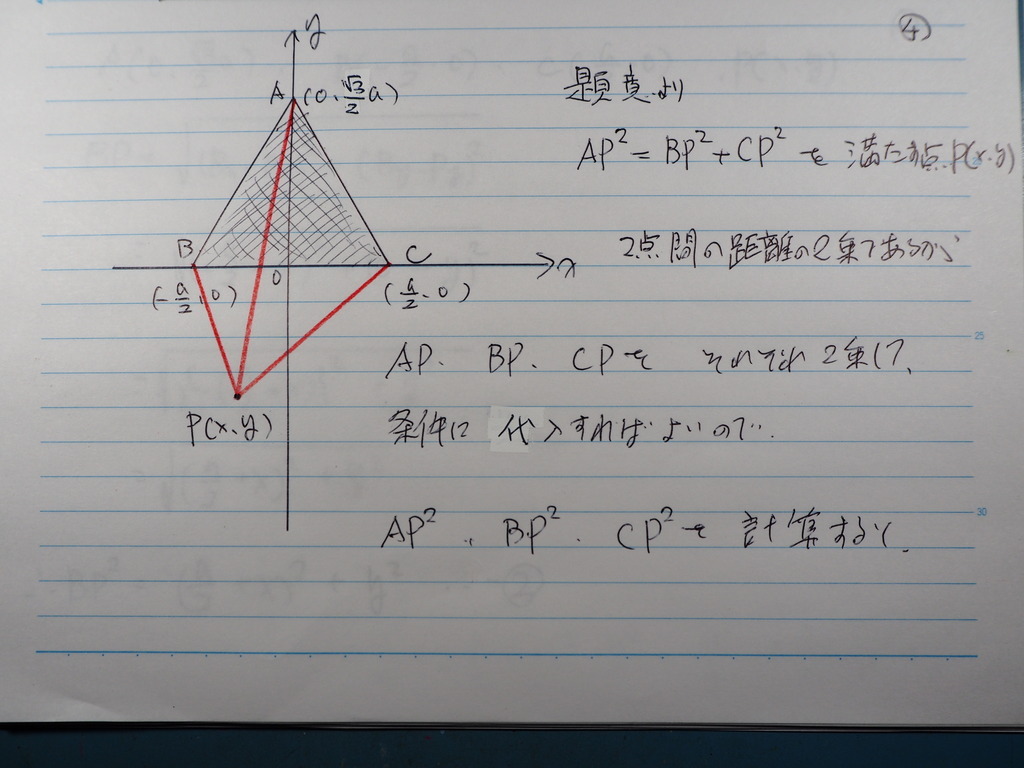 ④
y
A(0、√3/2 a)
題意より
AP²=BP²+CP²を満たす点P(x、y)
B
C
2点間の距離の2乗であるから
0
x
(-a/2、0)
(a/2、0)
25
AP、BP、CPを それぞれ2乗して、
P(x、y)
条件に代入すればよいので、
30
AP²、BP²、CP²を計算すると、